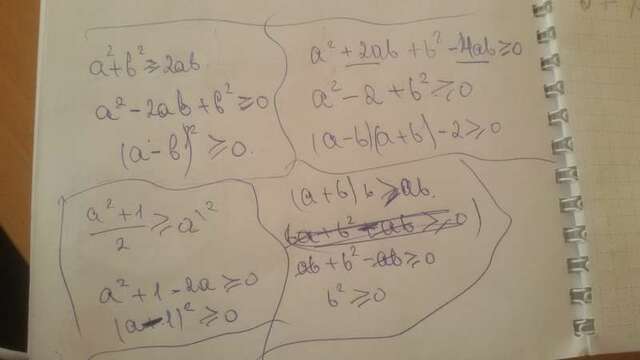 a² + b² ≥ 2ab
a² - 2ab + b² ≥ 0
(a - b)² ≥ 0.
a² + 2ab + b² - 4ab ≥ 0
a² - 2 + b² ≥ 0
(a-b)(a+b) - 2 ≥ 0
(a² + 1)/2 ≥ a
a² + 1 - 2a ≥ 0
(a - 1)² ≥ 0
(a + b) b ≥ ab.
ba + b² - ab ≥ 0
ab + b² - ab ≥ 0
b² ≥ 0